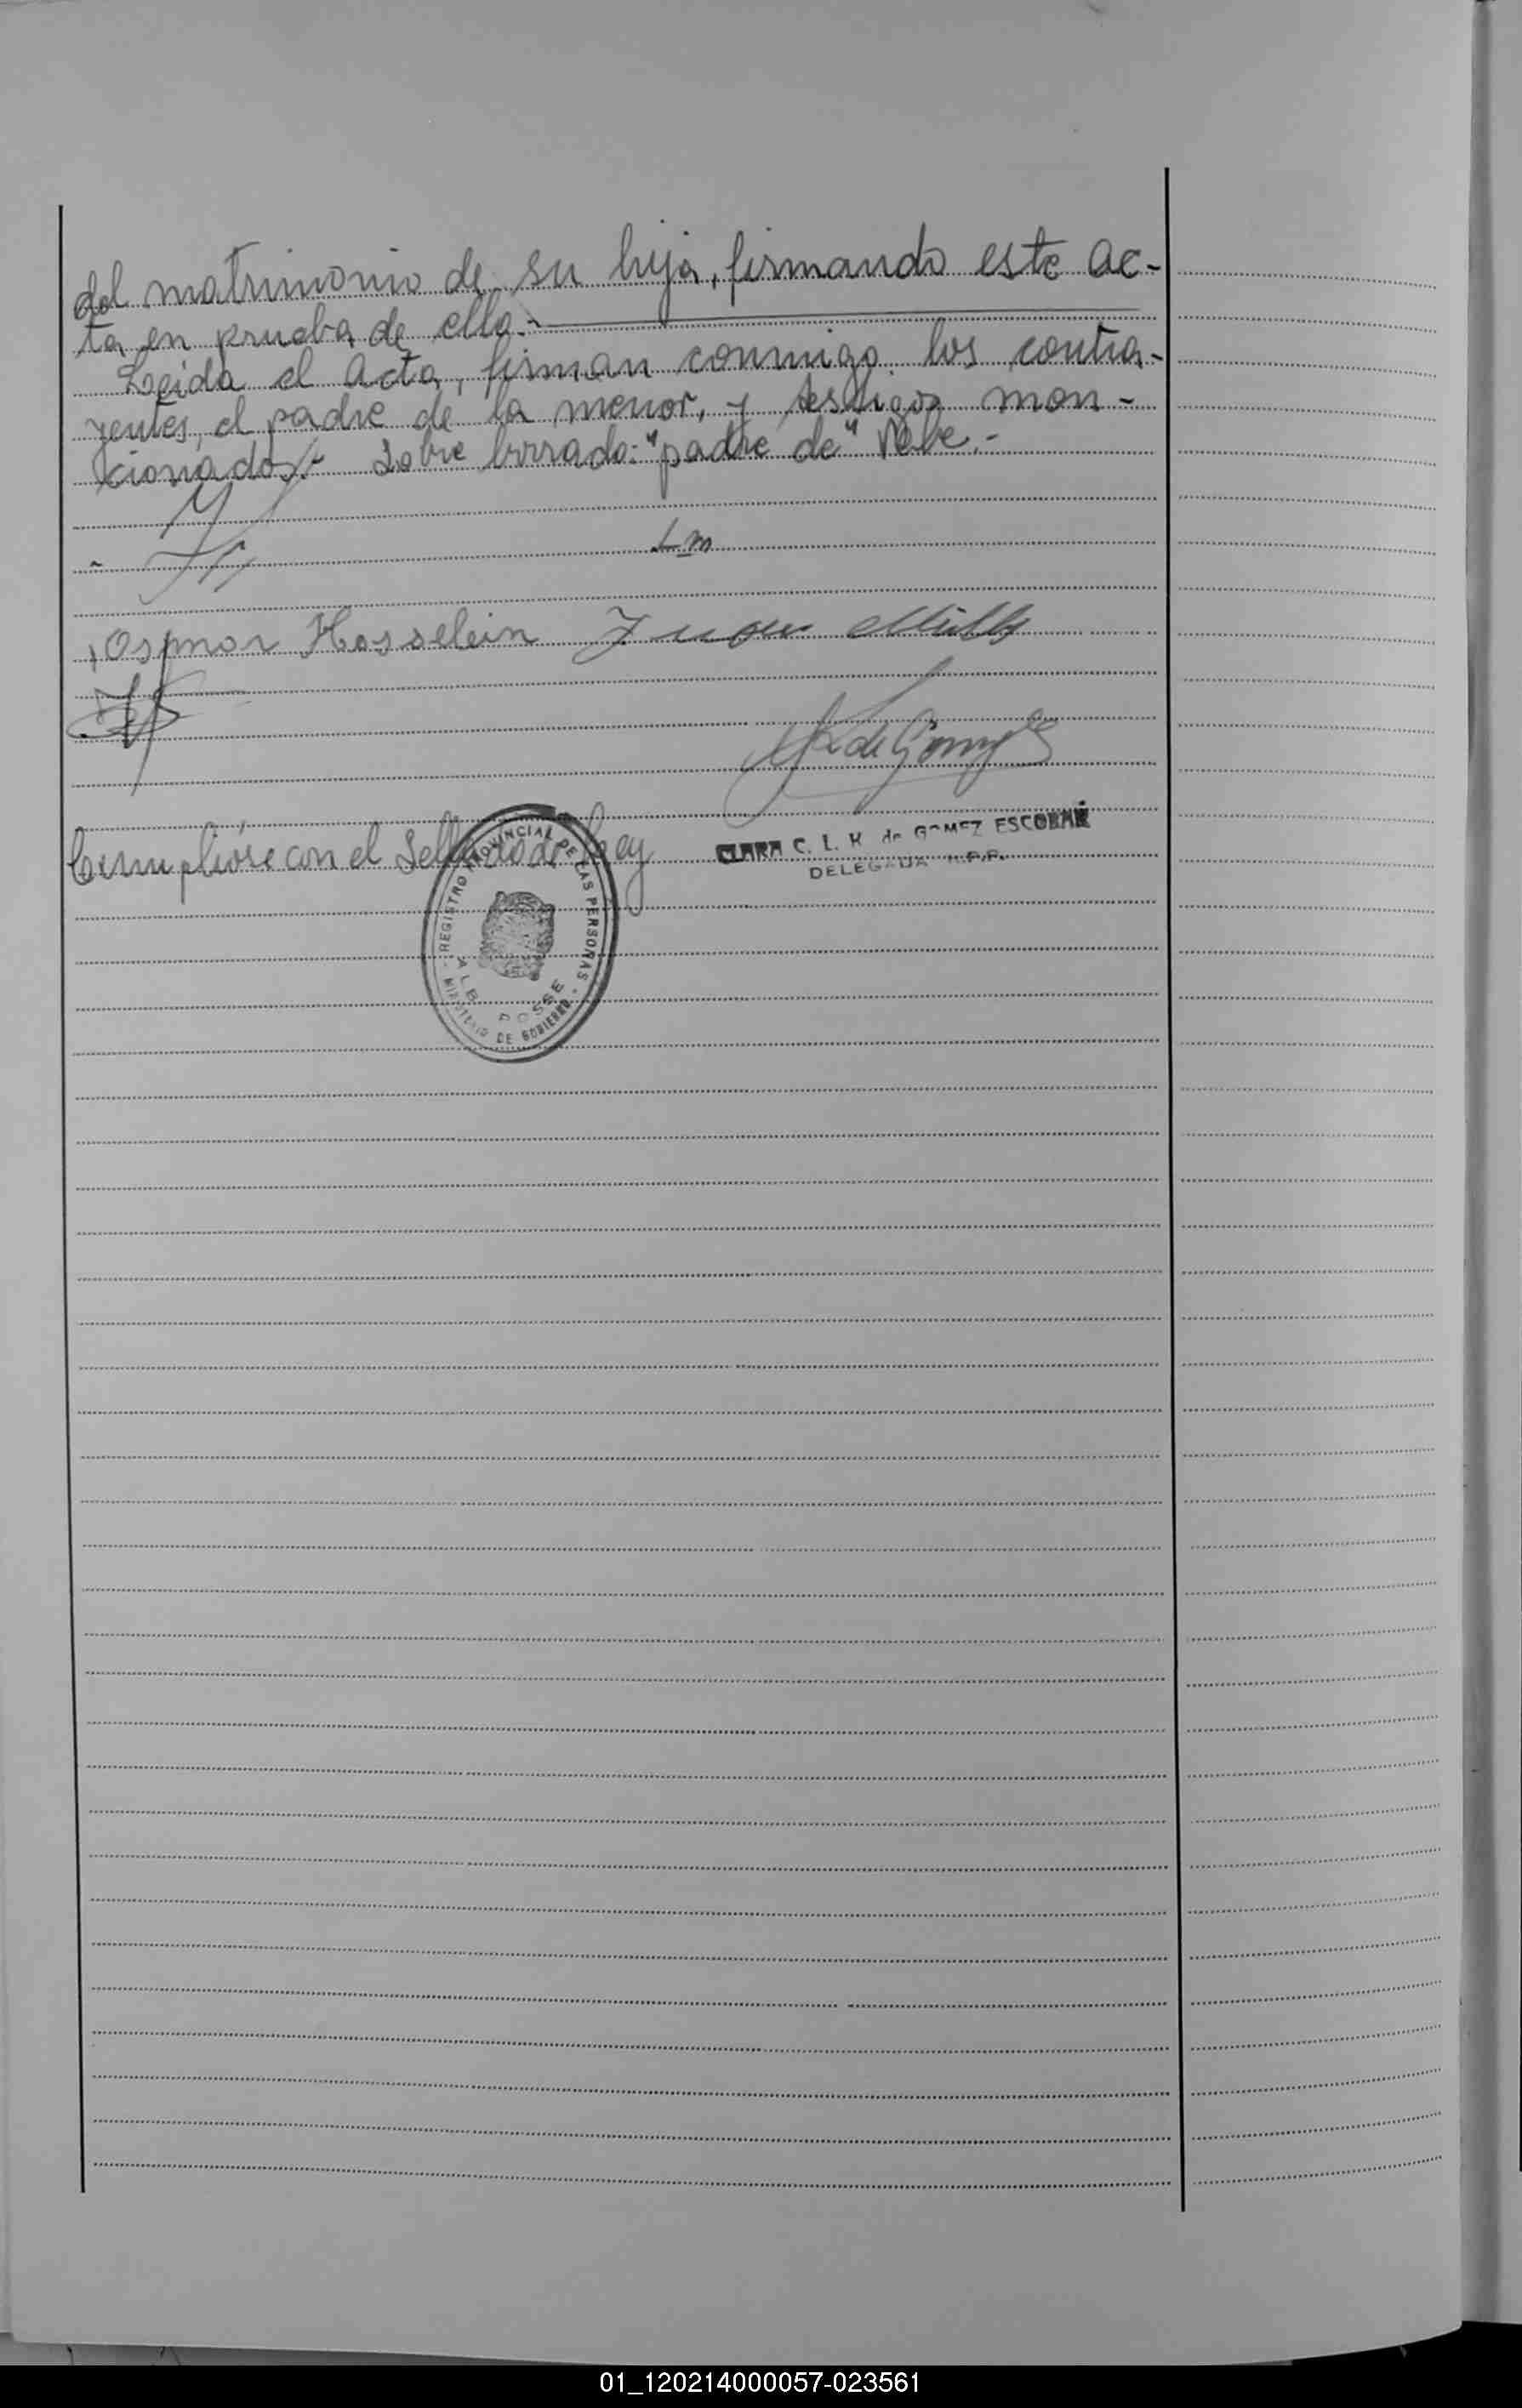 del matrimonio de su hija, firmando este ac-
ta en prueba de ello.-
Leida el Acta, firman conmigo los contra-
yentes, el padre de la menor, y testigos men-
cionados.- Sobre borrado: "padre de" Vale.-
Osmar Hosselein Juan
de Gomez
Cumplióse con el Sellado de Ley
CLARA C. L. K. de GOMEZ ESCOBAR
DELEGADA R.P.P.
REGISTRO PROVINCIAL DE LAS PERSONAS
ALB POSSE
MINISTERIO DE GOBIERNO
01_120214000057-023561